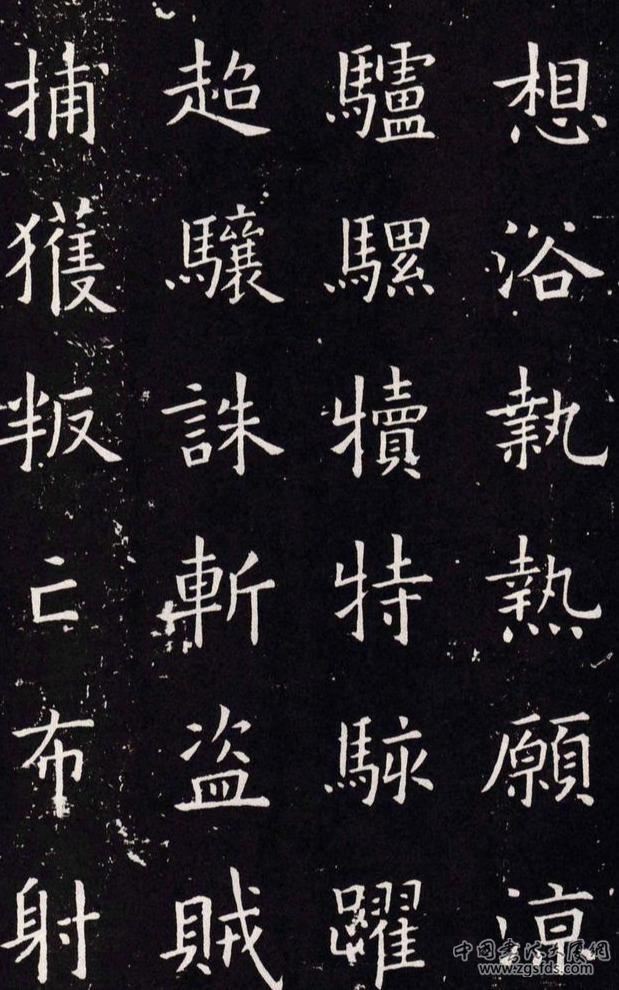 想浴執熱願涼
驢騾犢特駭躍
超驤誅斬盜賊
捕獲叛亡布射
中國書法大展網
www.zgsfds.com